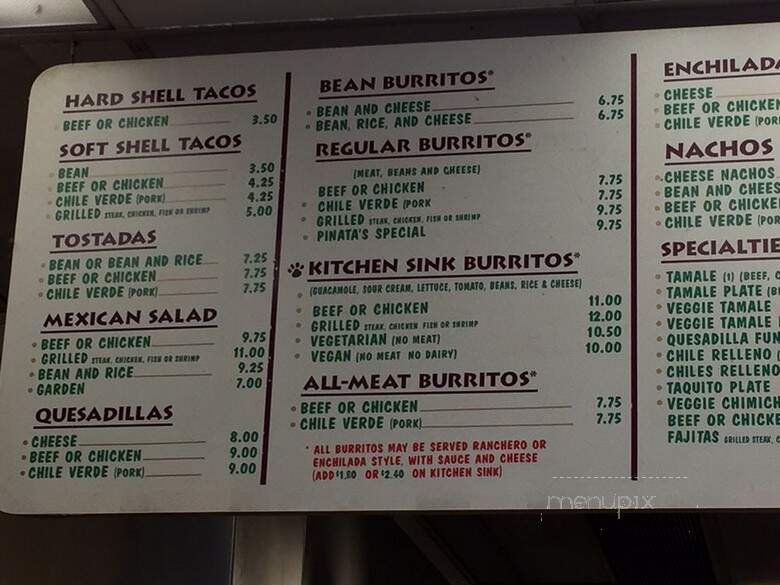 HARD SHELL TACOS
BEEF OR CHICKEN 3.50
SOFT SHELL TACOS
BEAN 3.50
BEEF OR CHICKEN 4.25
CHILE VERDE (PORK) 4.25
GRILLED STEAK, CHICKEN, FISH OR SHRIMP 5.00
TOSTADAS
BEAN OR BEAN AND RICE 7.25
BEEF OR CHICKEN 7.75
CHILE VERDE (PORK) 7.75
MEXICAN SALAD
BEEF OR CHICKEN 9.75
GRILLED STEAK, CHICKEN, FISH OR SHRIMP 11.00
BEAN AND RICE 9.25
GARDEN 7.00
QUESADILLAS
CHEESE 8.00
BEEF OR CHICKEN 9.00
CHILE VERDE (PORK) 9.00
BEAN BURRITOS*
BEAN AND CHEESE 6.75
BEAN, RICE, AND CHEESE 6.75
REGULAR BURRITOS*
(MEAT, BEANS AND CHEESE)
BEEF OR CHICKEN 7.75
CHILE VERDE (PORK 7.75
GRILLED STEAK, CHICKEN, FISH OR SHRIMP 9.75
PINATA'S SPECIAL 9.75
KITCHEN SINK BURRITOS*
(GUACAMOLE, SOUR CREAM, LETTUCE, TOMATO, BEANS, RICE & CHEESE)
BEEF OR CHICKEN 11.00
GRILLED STEAK, CHICKEN FISH OR SHRIMP 12.00
VEGETARIAN (NO MEAT) 10.50
VEGAN (NO MEAT NO DAIRY) 10.00
ALL-MEAT BURRITOS*
BEEF OR CHICKEN 7.75
CHILE VERDE (PORK) 7.75
* ALL BURRITOS MAY BE SERVED RANCHERO OR
ENCHILADA STYLE, WITH SAUCE AND CHEESE
(ADD $1.80 OR $2.40 ON KITCHEN SINK)
ENCHILADA
CHEESE
BEEF OR CHICKEN
CHILE VERDE (POR
NACHOS
CHEESE NACHOS
BEAN AND CHEES
BEEF OR CHICKE
CHILE VERDE (POR
SPECIALTIE
TAMALE (1) (BEEF, C
TAMALE PLATE (B
VEGGIE TAMALE
VEGGIE TAMALE
QUESADILLA FUN
CHILE RELLENO
CHILES RELLENO
TAQUITO PLATE
VEGGIE CHIMICH
BEEF OR CHICKE
FAJITAS GRILLED STEAK, C
menupix